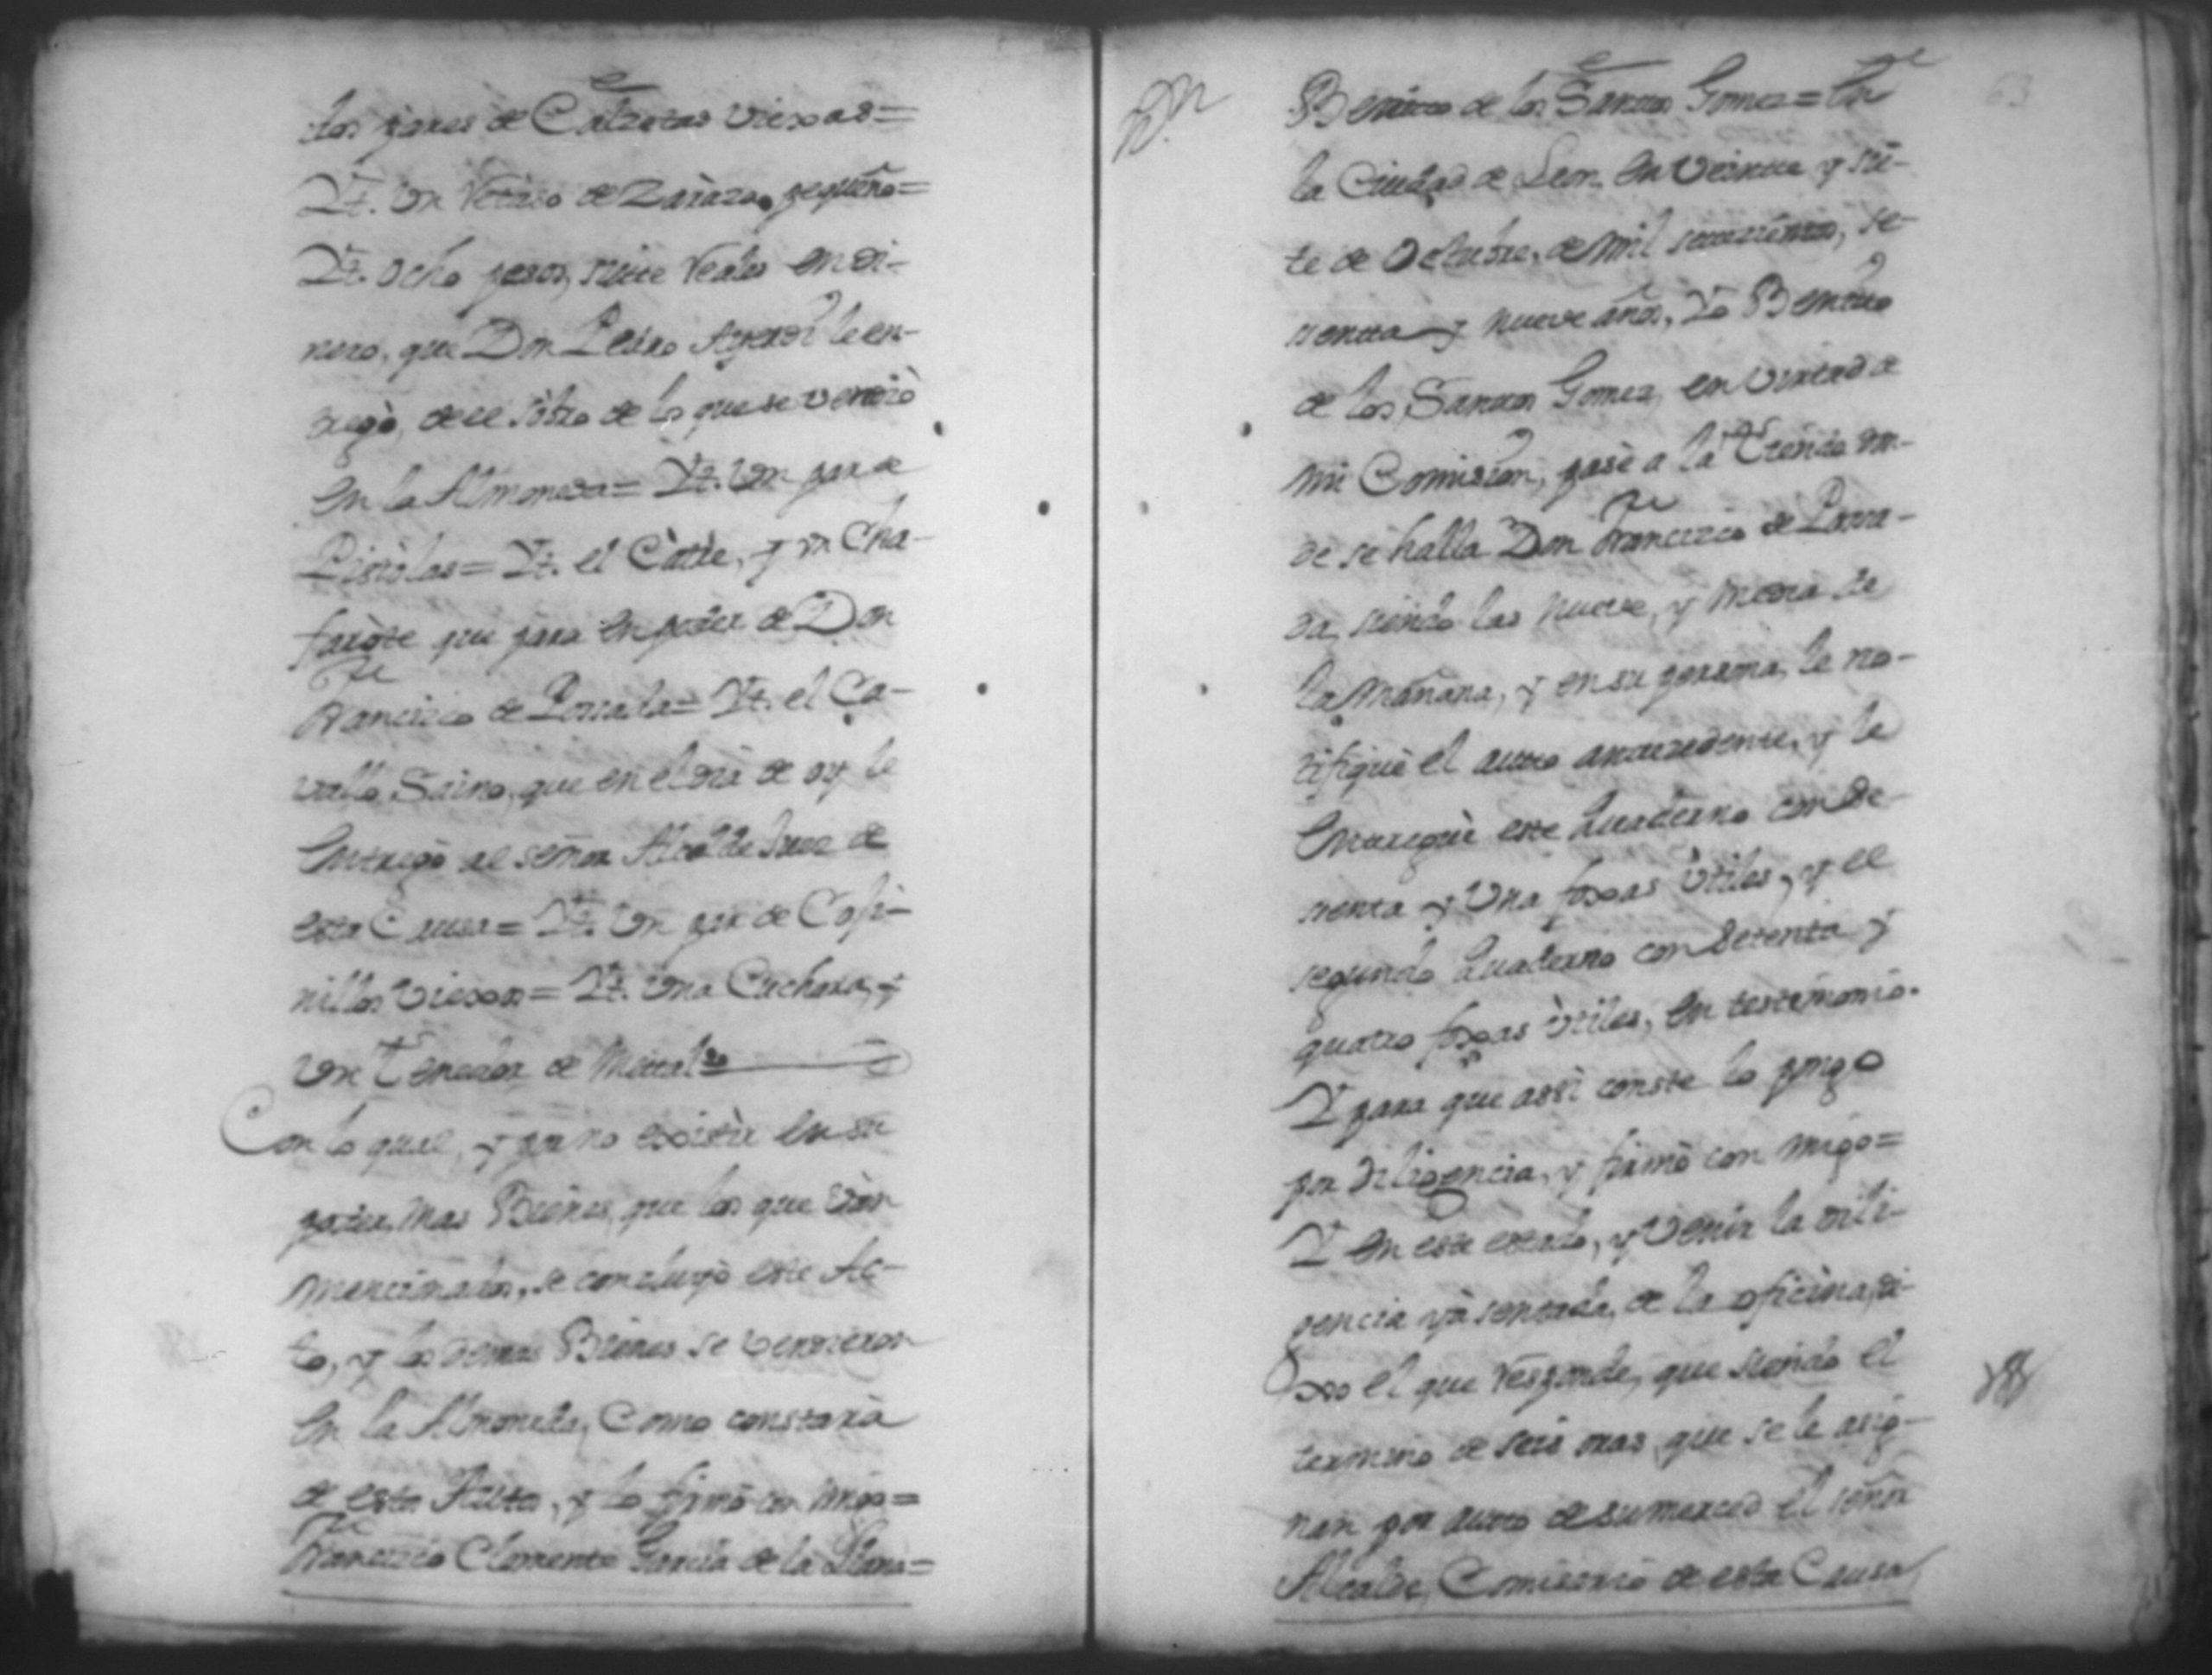 dos pares de Calzetas viexas=
Yt. Un retaso de Zaraza, pequeño=
Yt. ocho pesos, siete reales en di-
nero, que Don Pedro Ayerdi le en-
tregò, de el sobro de lo que se vendiò
En la Almoneda= Yt. Un par de
Pistolas= Yt. el Càtre, y un Cha-
farote que para en poder de Don
Francisco de Parrada= Yt. el Ca-
vallo Saino, que en el dia de oy le
Entregò al señor Alcalde Juez de
esta Causa= Yt. Un par de Coji-
nillos Viexos= Yt. Una Cuchara, y
Un Tenedor de Mettal=
Con lo qual, y por no existir En su
poder, mas Bienes, que los que ván
mencionados, se concluyò este Ac-
to, y los demas Bienes se vendieron
En la Almoneda, Como constarà
de estos Autos, y lo firmò con migo=
Francisco Clemente Garcia de la Llana=
63
Benitto de los Santtos Gomez= En
la Ciudad de Leon En veintte y sie-
te de Octubre, de mil settecientos, se-
sentta y nueve años, Yo Benitto
de los Santtos Gomez, en virtud de
mi Comision, pasè a la tienda on-
de se halla Don Francisco de Parra-
da, siendo las nueve, y media de
la Mañana, y en su persona, le no-
tifiquè el autto anttezedente, y le
Entreguè este Quaderno con se-
senta y Una foxas Utiles, y el
segundo Quaderno con Setenta y
quatro foxas Utiles, En testimonio.
Y para que assi conste lo pongo
por diligencia, y firmò con migo=
Y En este estado, y Venir la dili-
gencia yà sentada, de la oficina, di-
xo el que responde, que siendo el
termino de seis oras, que se le asig-
nan por autto de su merced el señor
Alcalde, Comisario de esta Causa